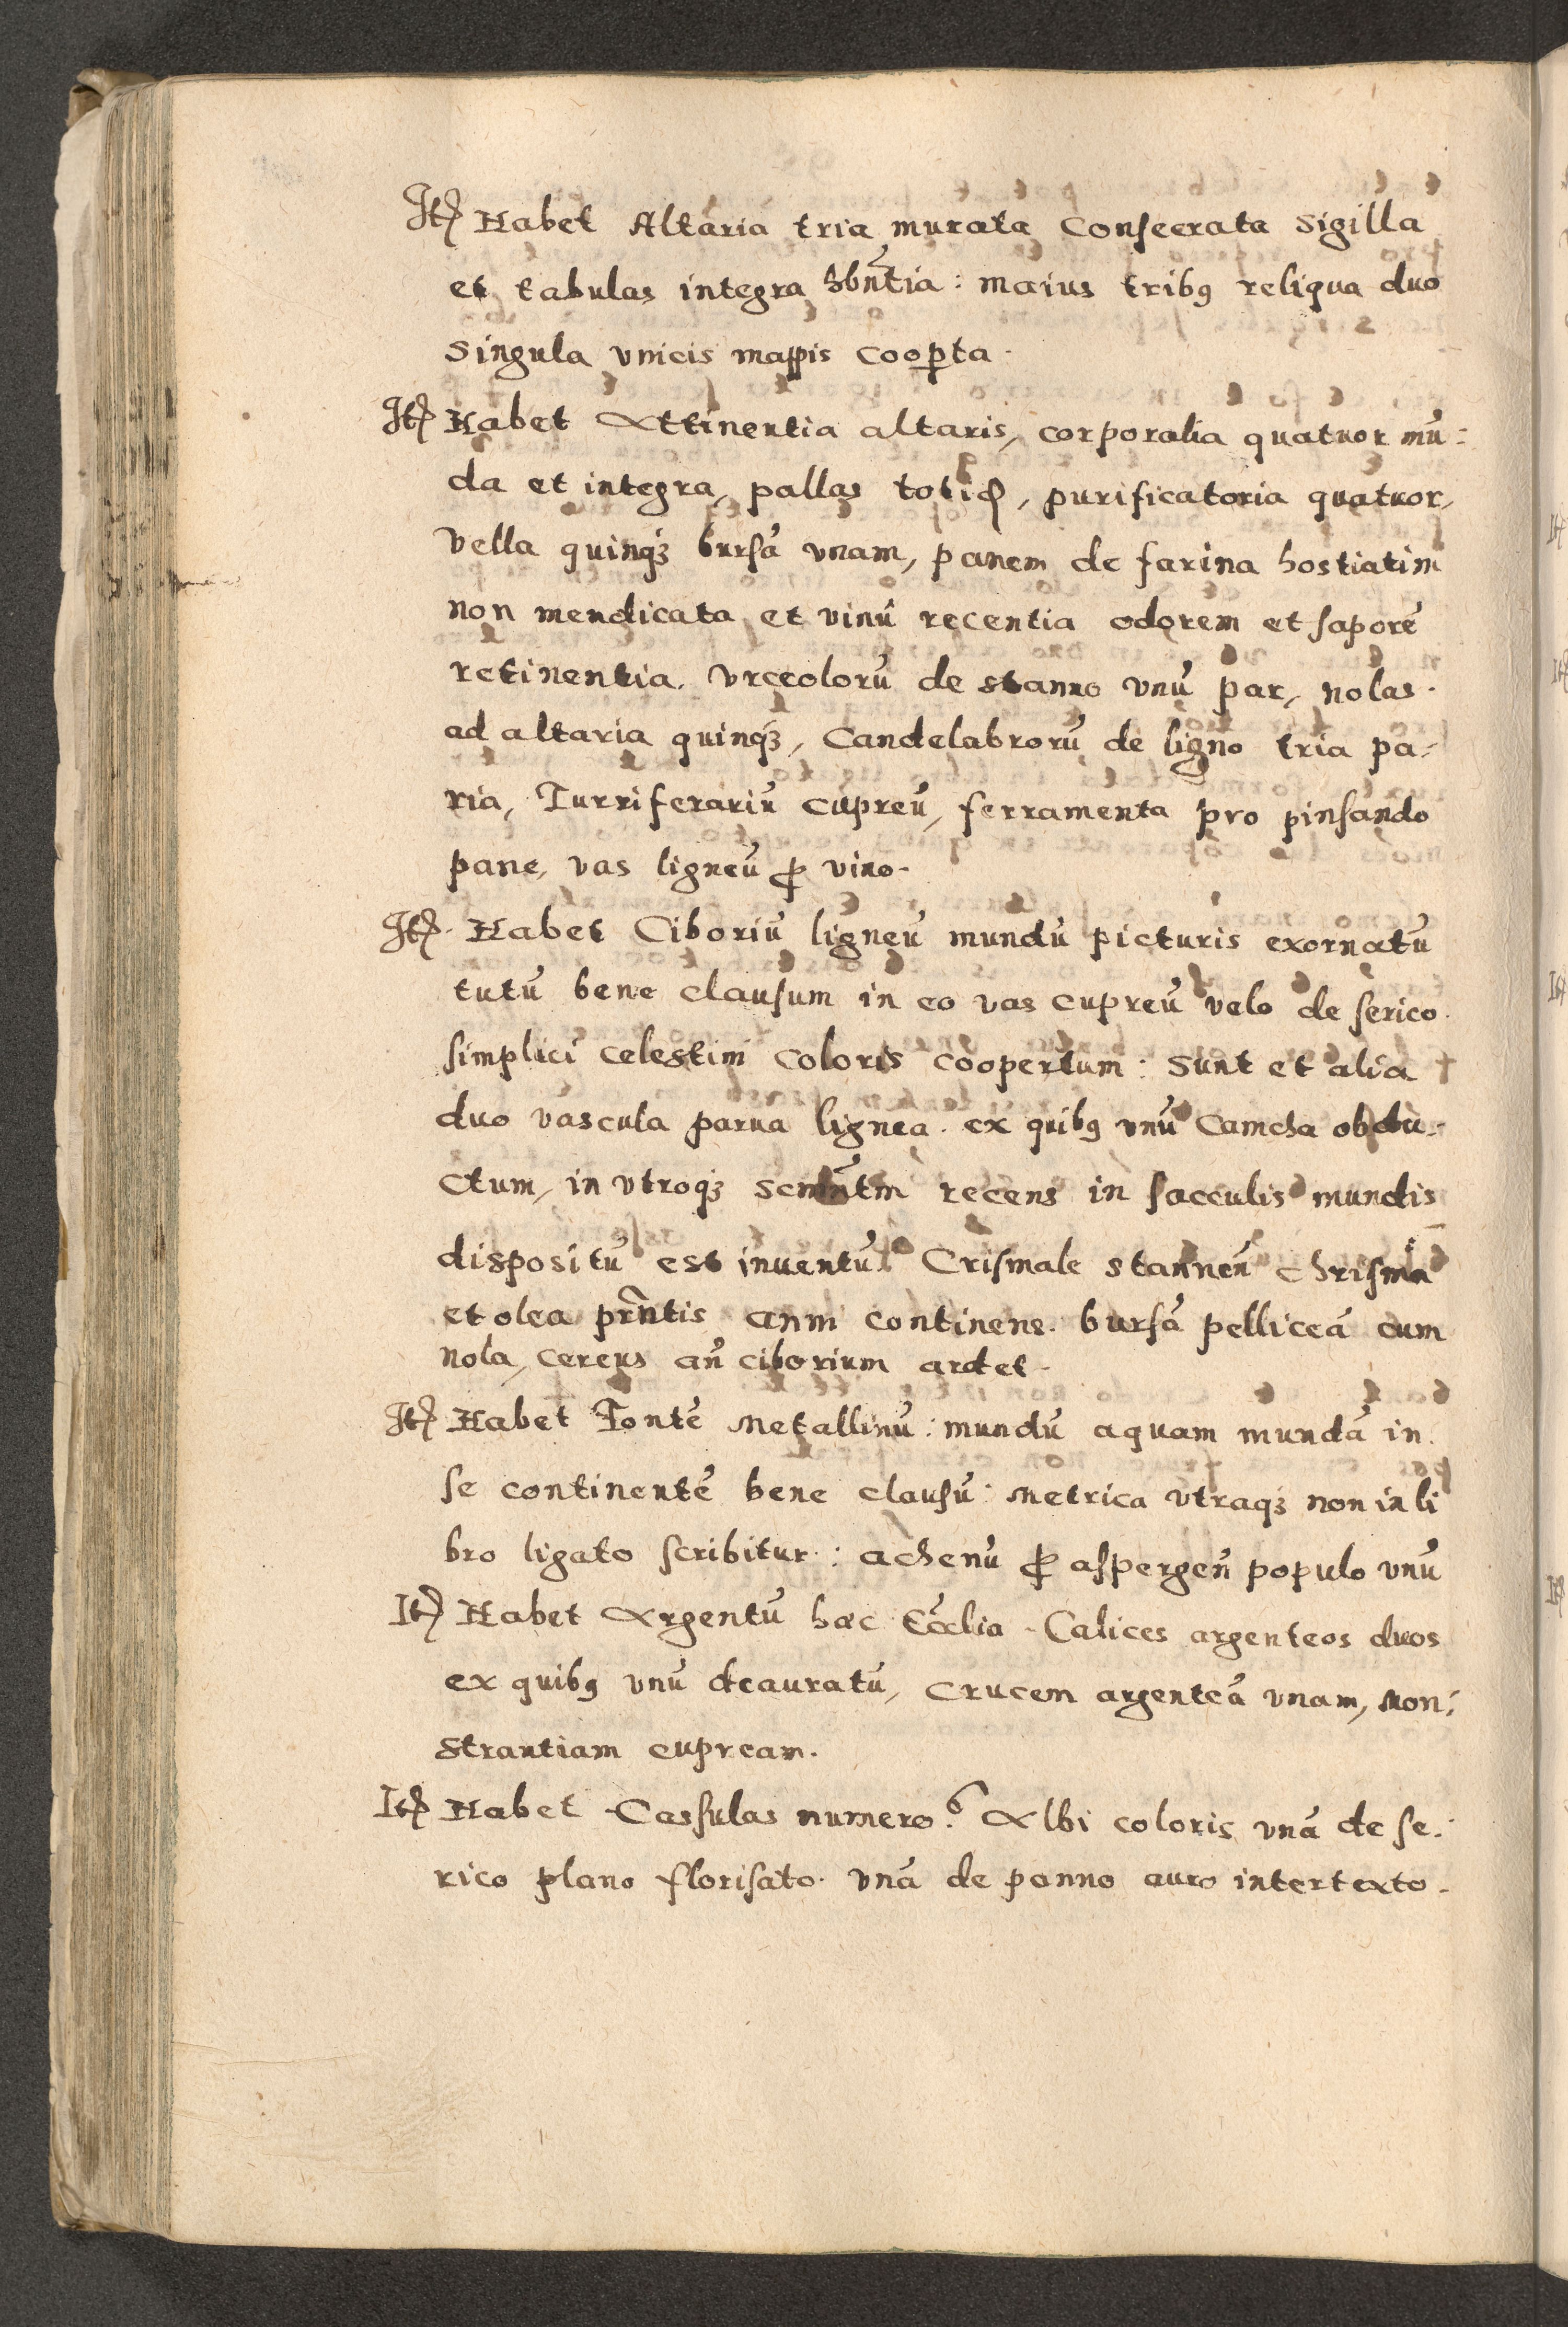 Itẽ Habet Altaria tria murata Consecrata Sigilla
et tabulas integra hbñtia: maius tribꝰ reliqua duo
Singula vnicis mappis cooꝑta.
Itẽ Habet Attinentia altaris, corporalia quatuor mũ:
da et integra, pallas totidẽ, purificatoria quatuor,
Vella quinqꝫ bursã vnam, panem de farina hostiatim
non mendicata et vinũ recentia odorem et saporẽ
retinentia. Vrceolorũ de stanno vnũ par, nolas.
ad altaria quinqꝫ, Candelabrorũ de ligno tria pa-
ria, Turriferariũ cupreũ, ferramenta pro pinsando
pane, vas ligneũ ꝓ vino.
Itẽ. Habet Ciboriũ ligneũ mundũ picturis exornatũ
tutũ bene clausum in eo vas cupreũ velo de serico
simplici celestini coloris coopertum: Sunt et alia
duo vascula parua lignea. ex quibꝰ vnũ Camcha obdu-
ctum, in vtroqꝫ recens in sacculis mundis
dispositũ est inuentũ. Crismale stanneũ Chrisma
et olea prñtis anni continens. bursã pelliceã cum
nola, cereus añ ciborium ardet.
Itẽ Habet Fontẽ Metallinũ: mundũ aquam mundã in
se continentẽ bene clausũ: Metrica vtraqꝫ non in li
bro ligato scribitur: achenũ ꝓ aspergeñ populo vnũ
Itẽ Habet Argentũ haec Ecclia. Calices argenteos duos
ex quibꝰ vnũ deauratũ, Crucem argenteã vnam, Mon:
strantiam cupream.
Itẽ Habet Cassulas numero 6. Albi coloris vnã de se:
rico plano florisato. vnã de panno auro intertexto.